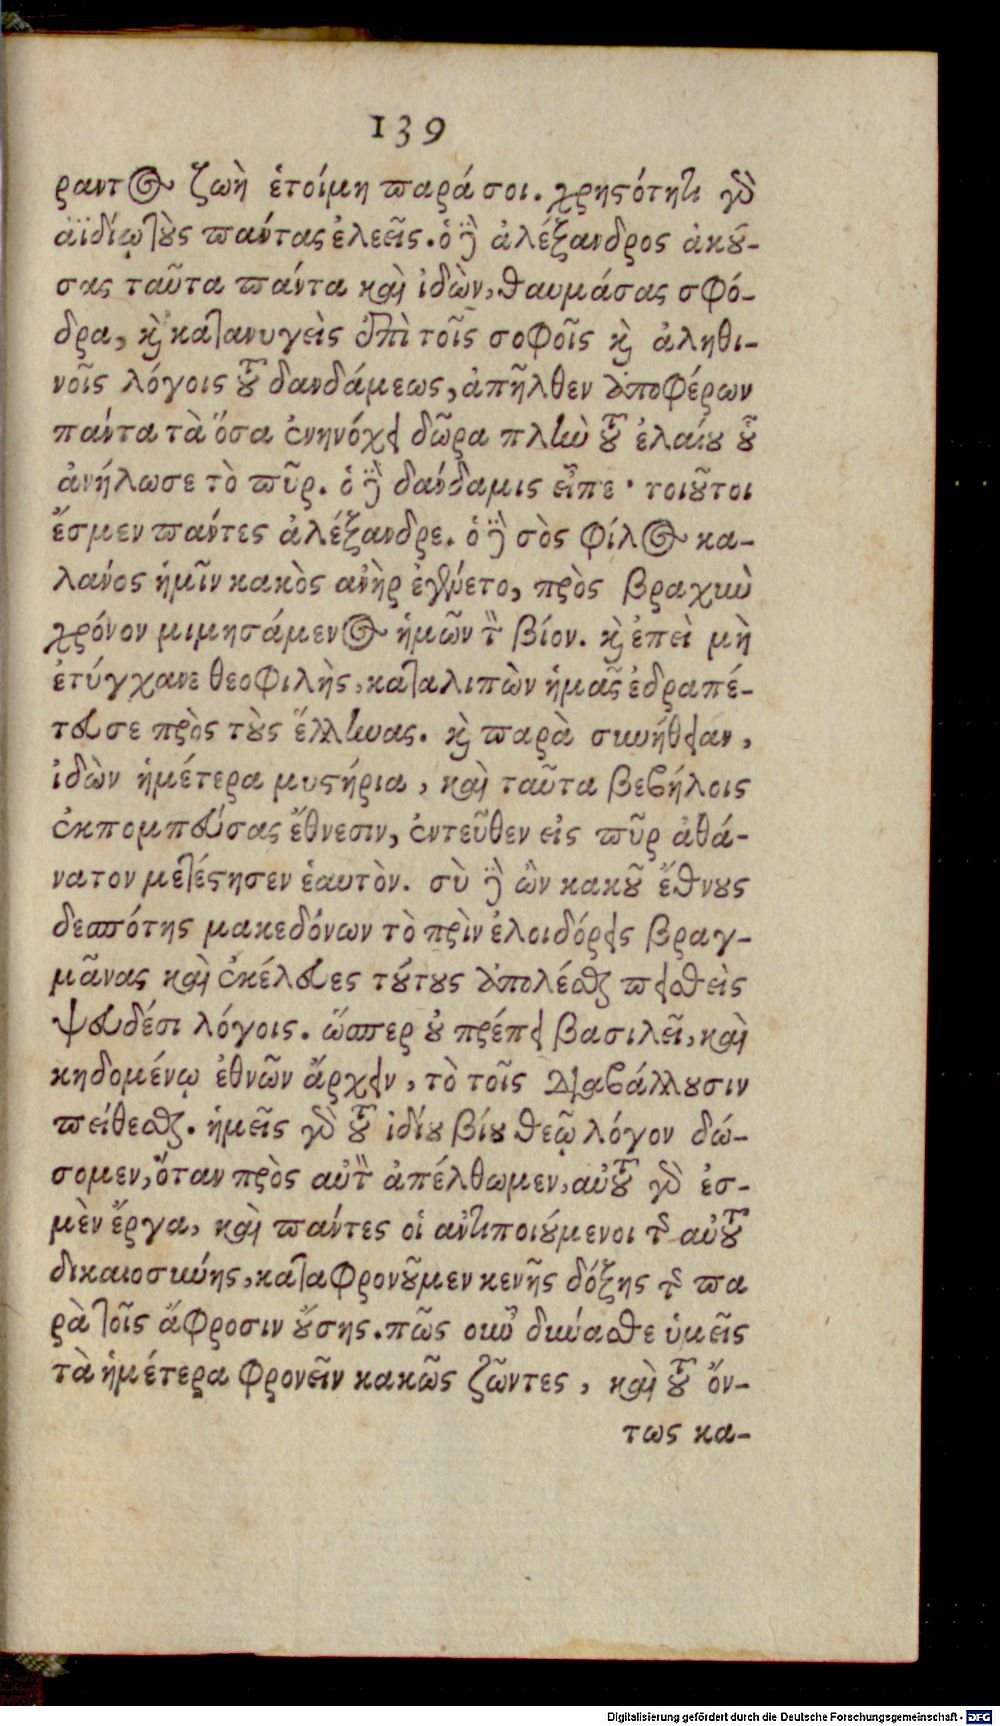 139
ραντος ζωὴ ἑτοίμη παρά σοι. χρηστότητι γὸ
ἀϊδίῳ τοὺς πάντας ἐλεεῖς. ὁ δὲ ἀλέξανδρος ἀκού-
σας ταῦτα πάντα καὶ ἰδὼν, θαυμάσας σφό-
δρα, καὶ κατανυγεὶς ἐπὶ τοῖς σοφοῖς καὶ ἀληθι-
νοῖς λόγοις τοῦ δανδάμεως, ἀπῆλθεν ἀποφέρων
πάντα τὰ ὅσα ἐνηνόχει δῶρα πλὴν τοῦ ἐλαίου οὗ
ἀνήλωσε τὸ πῦρ. ὁ δὲ δάνδαμις εἶπε· τοιοῦτοι
ἔσμεν πάντες ἀλέξανδρε. ὁ δὲ σὸς φίλος κα-
λάνος ἡμῖν κακὸς ἀνὴρ ἐγένετο, πρὸς βραχὺν
χρόνον μιμησάμενος ἡμῶν τὸν βίον. καὶ ἐπεὶ μὴ
ἐτύγχανε θεοφιλὴς, καταλιπὼν ἡμᾶς ἐδραπέ-
τευσε πρὸς τοὺς ἕλληνας. καὶ παρὰ συνήθειαν,
ἰδὼν ἡμέτερα μυστήρια, καὶ ταῦτα βεβήλοις
ἐκπομπεύσας ἔθνεσιν, ἐντεῦθεν εἰς πῦρ ἀθά-
νατον μετέστησεν ἑαυτὸν. σὺ δὲ ὢν κακοῦ ἔθνους
δεσπότης μακεδόνων τὸ πρὶν ἐλοιδόρεις βραγ-
μᾶνας καὶ ἐκέλευες τούτους ἀπολέσθαι πεισθεὶς
ψευδέσι λόγοις. ὥσπερ οὐ πρέπει βασιλεῖ, καὶ
κηδομένῳ ἐθνῶν ἄρχειν, τὸ τοῖς διαβάλλουσιν
πείθεσθαι. ἡμεῖς γὸ τοῦ ἰδίου βίου θεῷ λόγον δώ-
σομεν, ὅταν πρὸς αὐτὸν ἀπέλθωμεν, αὐτοῦ γὸ ἐσ-
μὲν ἔργα, καὶ πάντες οἱ ἀντιποιούμενοι τῆς αὐτοῦ
δικαιοσύνης, καταφρονοῦμεν κενῆς δόξης τῆς πα
ρὰ τοῖς ἄφροσιν οὔσης. πῶς οὖν δύνασθε ὑμεῖς
τὰ ἡμέτερα φρονεῖν κακῶς ζῶντες, καὶ τοῦ ὄν-
τως κα-
Digitalisierung gefördert durch die Deutsche Forschungsgemeinschaft - DFG